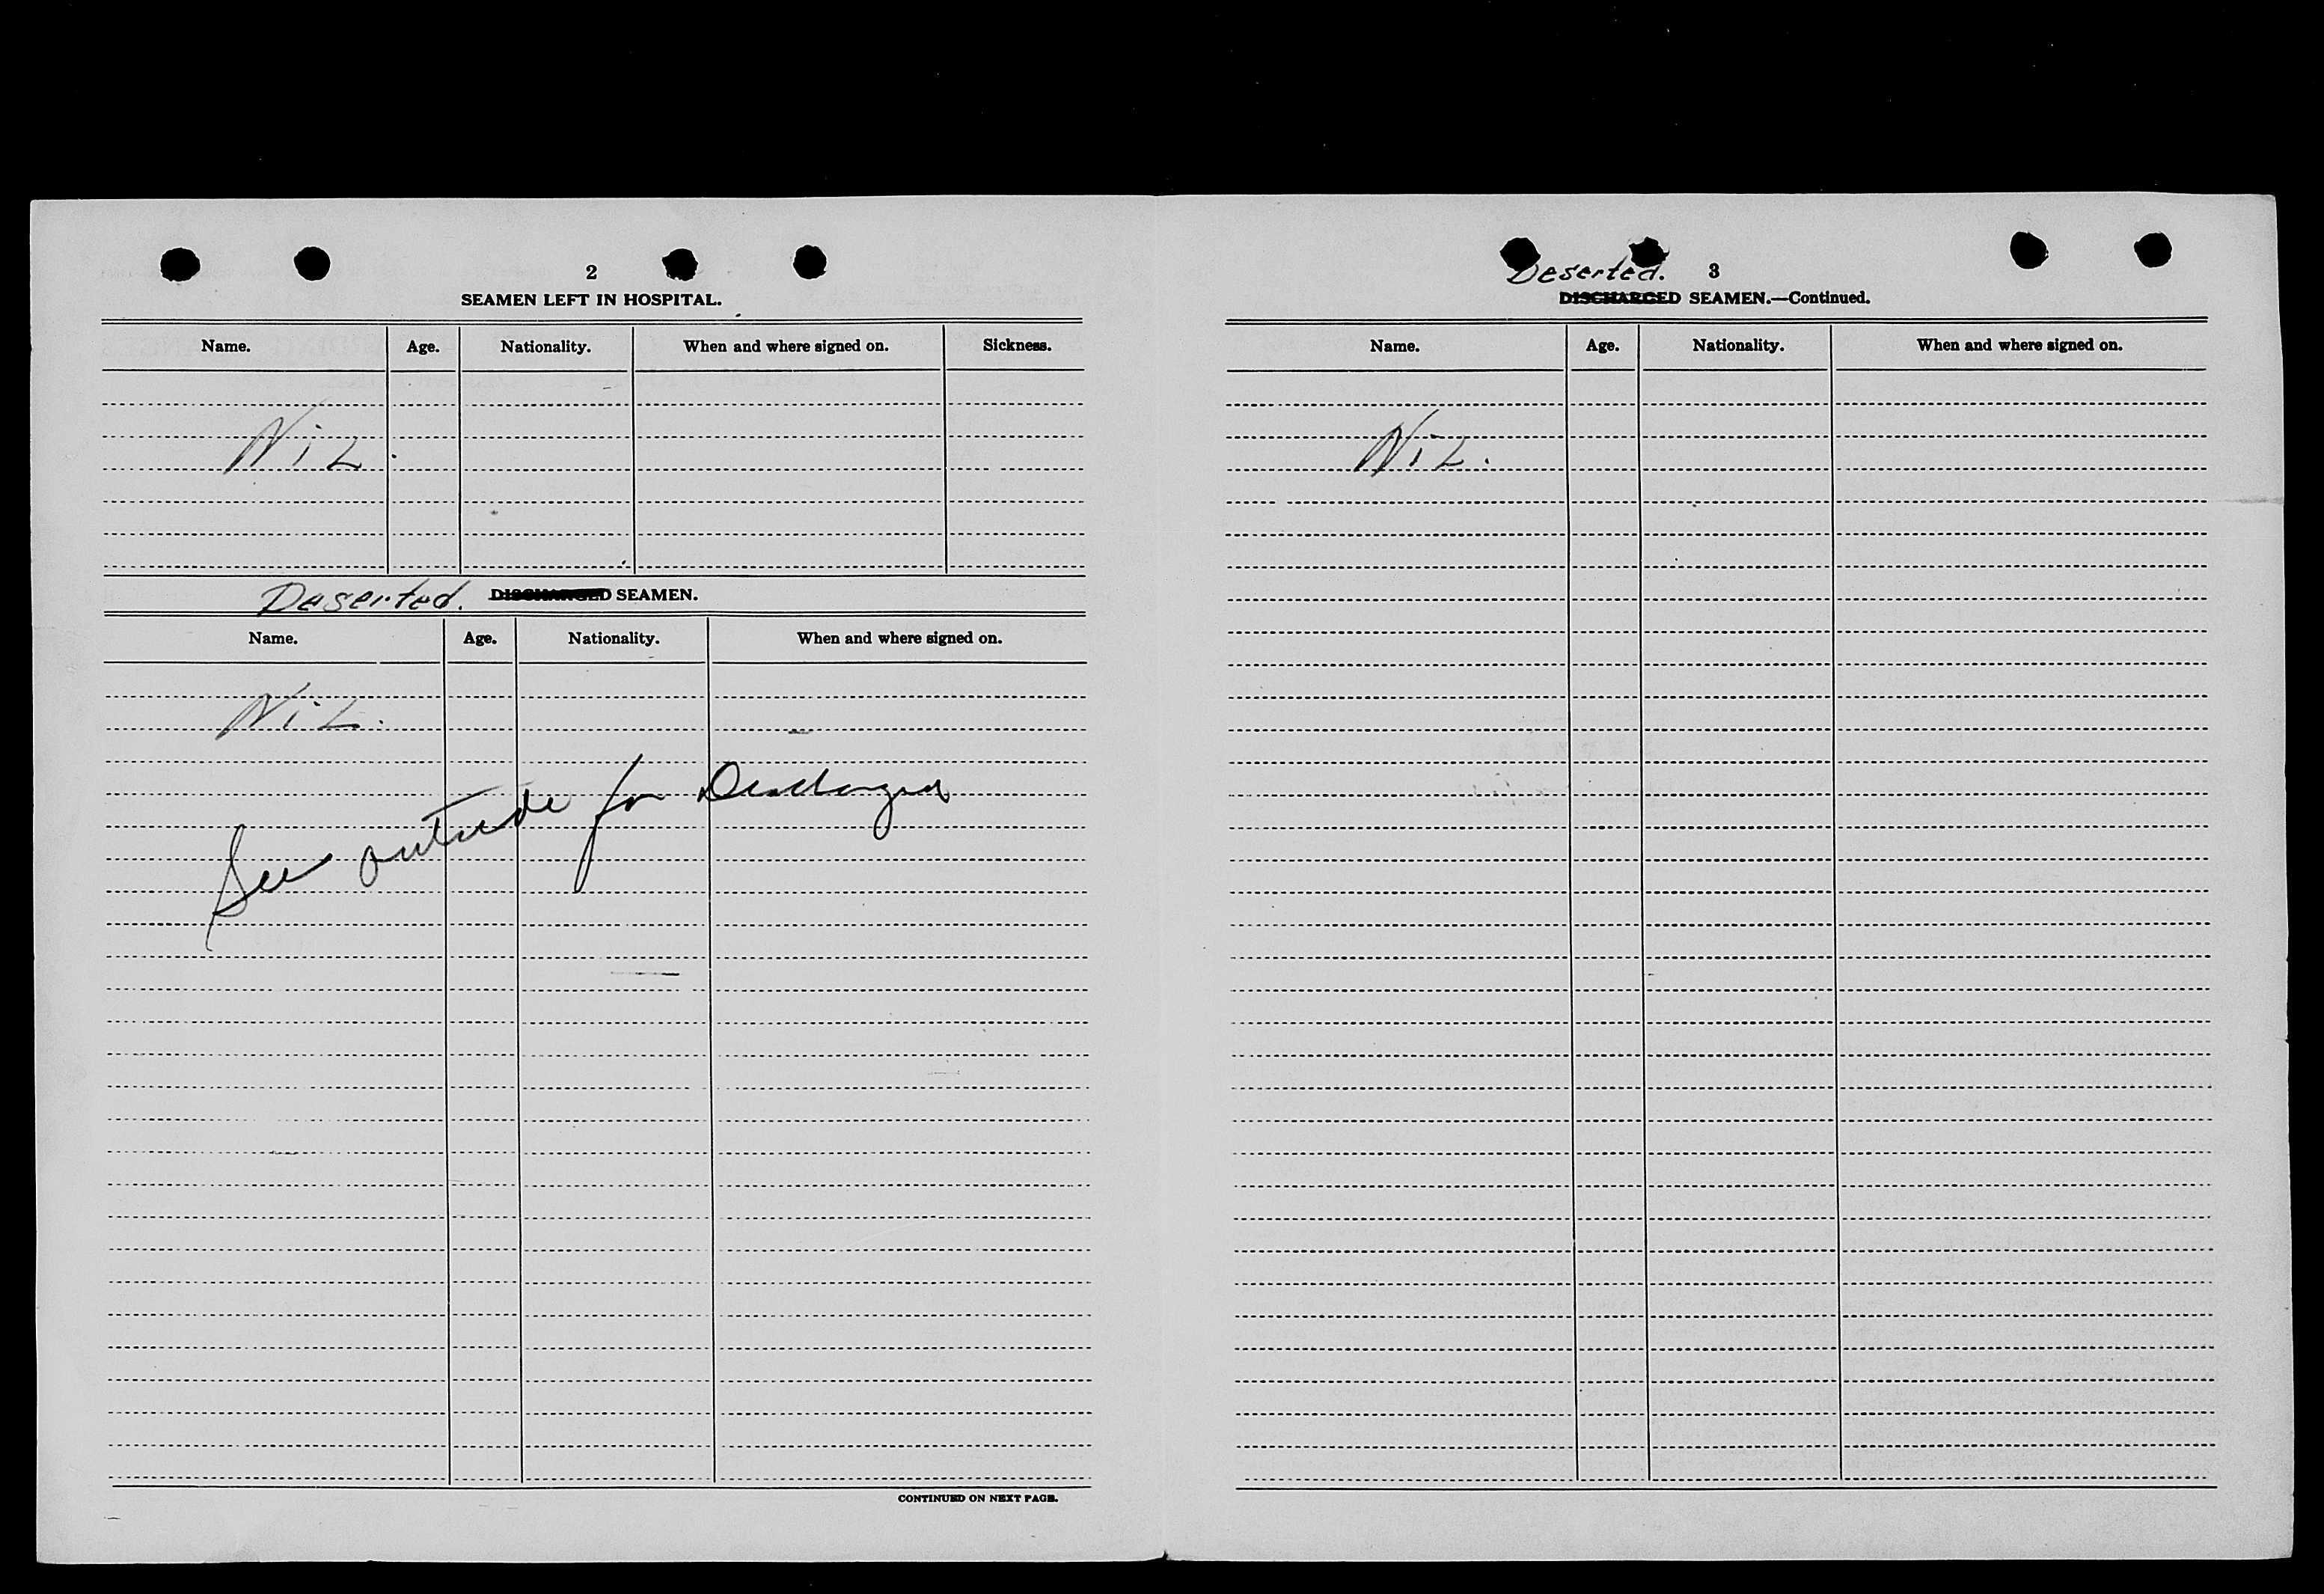 2
SEAMEN LEFT IN HOSPITAL.
Name. Age. Nationality. When and where signed on. Sickness.
NiL.
Deserted. DISCHARGED SEAMEN.
Name. Age. Nationality. When and where signed on.
NiL.
See outside for Discharged
CONTINUED ON NEXT PAGE.
Deserted. 3
DISCHARGED SEAMEN.—Continued.
Name. Age. Nationality. When and where signed on.
NiL.